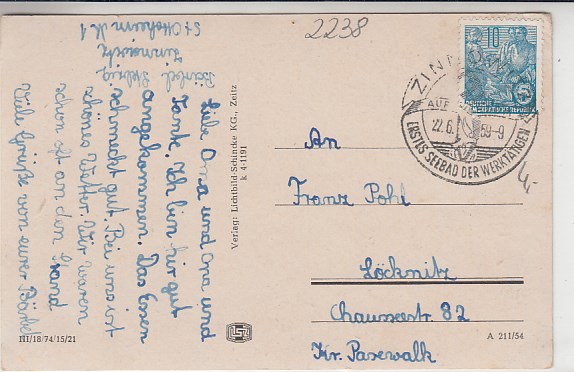 Liebe Oma und Opa und
Tante. Ich bin hir gut
angekommen. Das Essen
schmeckt gut. Bei uns ist
schönes Wetter. Wir waren
schon oft an den Strand
Viele Grüße von eurer Bärbel
Bärbel
Zinnowitz
Verlag: Lichtbild-Schincke KG., Zeitz
k 4-1191
III/18/74/15/21
2238
10
DEUTSCHE
DEMOKRATISCHE REPUBLIK
ZINNOWITZ
AUF
22.6.59-9
ERSTES SEEBAD DER WERKTÄTIGEN
4,-
An
Franz Pohl
Löcknitz
Chausseestr. 82
Kr. Pasewalk
A 211/54